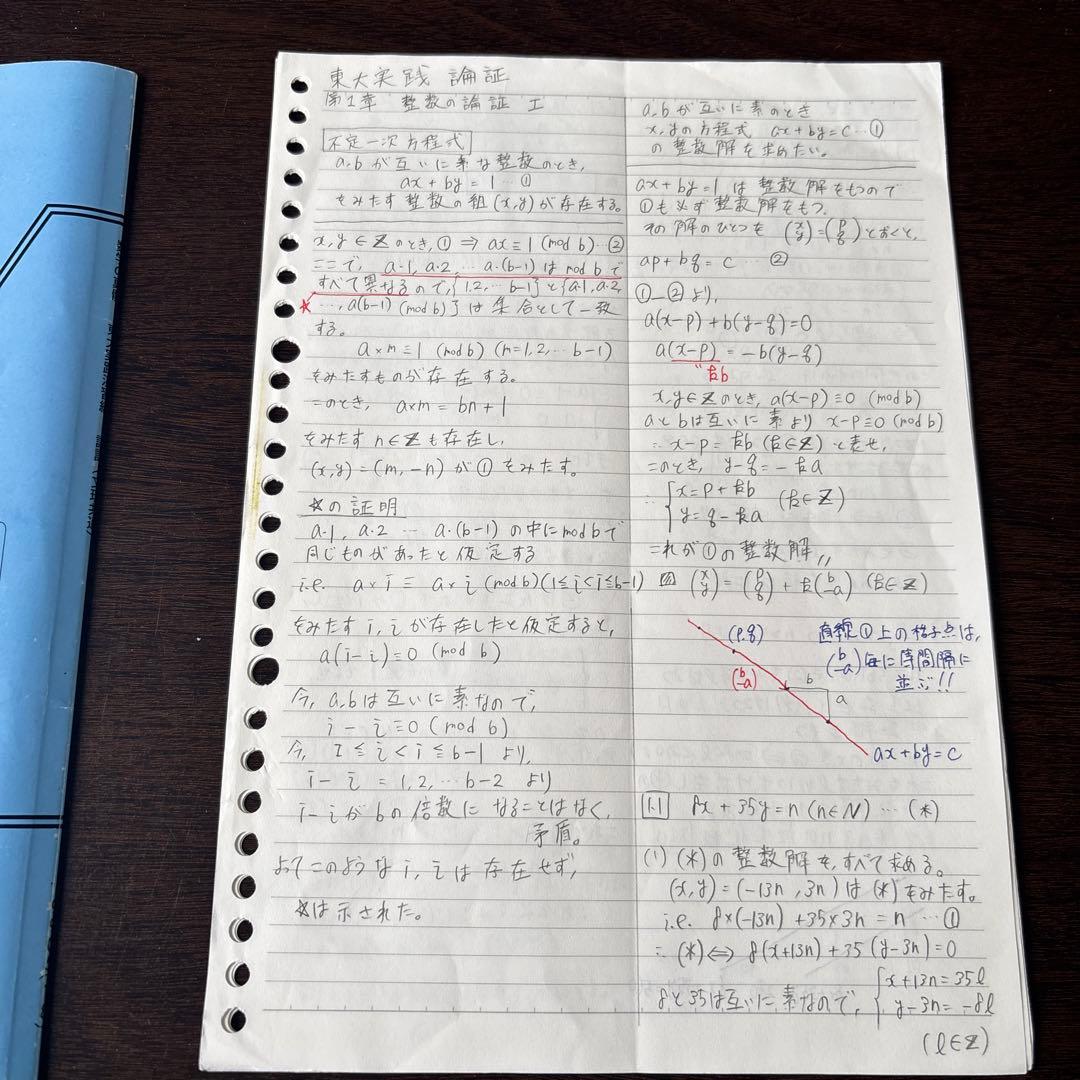 東大実践 論証
第1章 整数の論証 I
不定一次方程式
a,bが互いに素な整数のとき,
ax+by=1…①
をみたす整数の組(x,y)が存在する。
x,y∈ℤのとき,①⇒ax≡1(mod b)…②
ここで,a・1,a・2,…a・(b-1)はmod bで
すべて異なるので,{1,2,…b-1}と{a・1,a・2,
☆…,a(b-1)(mod b)}は集合として一致
する。
a×m≡1(mod b)(m=1,2,…b-1)
をみたすものが存在する。
このとき, a×m=bn+1
をみたすn∈ℤも存在し,
(x,y)=(m,-n)が①をみたす。
☆の証明
a・1,a・2…a・(b-1)の中にmod bで
同じものがあったと仮定する
i.e. a×j≡a×i(mod b)(1≦i<j≦b-1)
をみたすj,iが存在したと仮定すると,
a(j-i)≡0(mod b)
今,a,bは互いに素なので,
j-i≡0(mod b)
今,1≦i<j≦b-1より,
j-i=1,2,…b-2より
j-iがbの倍数になることはなく,
矛盾。
よってこのようなj,iは存在せず,
☆は示された。
a,bが互いに素のとき
x,yの方程式 ax+by=c…①
の整数解を求めたい。
ax+by=1は整数解をもつので
①も必ず整数解をもつ.
その解のひとつを(x y)=(p q)とおくと,
ap+bq=c…②
①-②より,
a(x-p)+b(y-q)=0
a(x-p)=-b(y-q)
"kb
x,y∈ℤのとき,a(x-p)≡0(mod b)
aとbは互いに素よりx-p≡0(mod b)
∴x-p=kb(k∈ℤ)と表せ,
このとき,y-q=-ka
∴{x=p+kb
y=q-ka (k∈ℤ)
これが①の整数解〃
図 (x y)=(p q)+k(b -a)(k∈ℤ)
(p,q)
直線①上の格子点は,
(b -a)毎に等間隔に
並ぶ!!
(b -a)
b
a
ax+by=c
1.1 8x+35y=n(n∈N)…(*)
(1)(*)の整数解を,すべて求める。
(x,y)=(-13n,3n)は(*)をみたす。
i.e. 8×(-13n)+35×3n=n…①
∴(*)⇔8(x+13n)+35(y-3n)=0
8と35は互いに素なので,{x+13n=35ℓ
y-3n=-8ℓ
(ℓ∈ℤ)